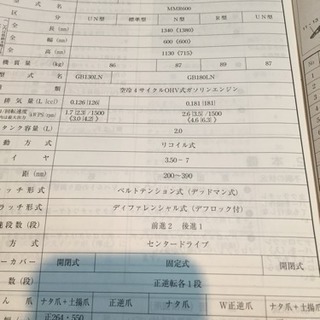 MMR600
区 分 UN型 標準型 N型 R型 U型
全 長 (mm) 1340 (1380)
全 幅 (mm) 600 (600)
全 高 (mm) 1130 (715)
機 質 量 (kg) 86 87 89 87
型 式 名 GB130LN GB180LN
空冷4サイクルOHV式ガソリンエンジン
排 気 量 (L{cc}) 0.126{126} 0.181{181}
1.7{2.3}/1500 2.6{3.5}/1500
{3.0{4.2}} {4.6{6.3}}
タンク容量 (L) 2.0
動 方 式 リコイル式
イ ヤ 3.50-7
距 (mm) 200~390
ッチ形式 ベルトテンション式(デッドマン式)
ラッチ形式 ディファレンシャル式(デフロック付)
速段数(段) 前進2 後進1
方 式 センタードライブ
ーカバー 開閉式 固定式 開閉式
数 (段) 正逆転各1段
ん 爪 ナタ爪+土揚爪 正逆爪 ナタ爪 W正逆爪 ナタ爪+土揚
正264・550